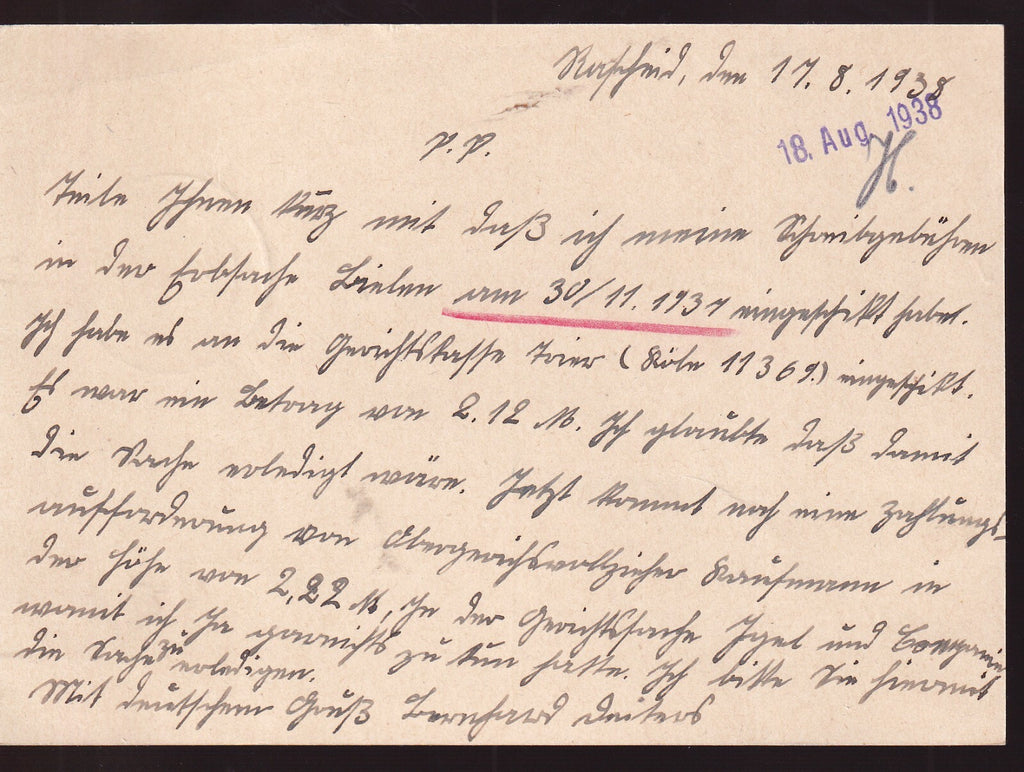 Rascheid, den 17. 8. 1938
18. Aug. 1938
H.
p. p.
Teile Ihnen kurz mit daß ich meine Schreibgebühren
in der Erbsache Bielen am 30/11. 1937 eingeschikt habe.
Ich habe es an die Gerichtskasse Trier (Köln 11369.) eingeschikt.
Es war ein Betrag von 2.12 M. Ich glaubte daß damit
die Sache erledigt wäre. Jetzt kommt noch eine Zahlungs-
aufforderung von Obergerichsvollzieher Kaufmann in
der Höhe von 2,22 M, In der Gerichtssache Igel und Companie
womit ich Ja garnichts zu tun hatte. Ich bitte Sie hiermit
die Sache zu erledigen.
Mit deutschem Gruß Bernhard Deiters